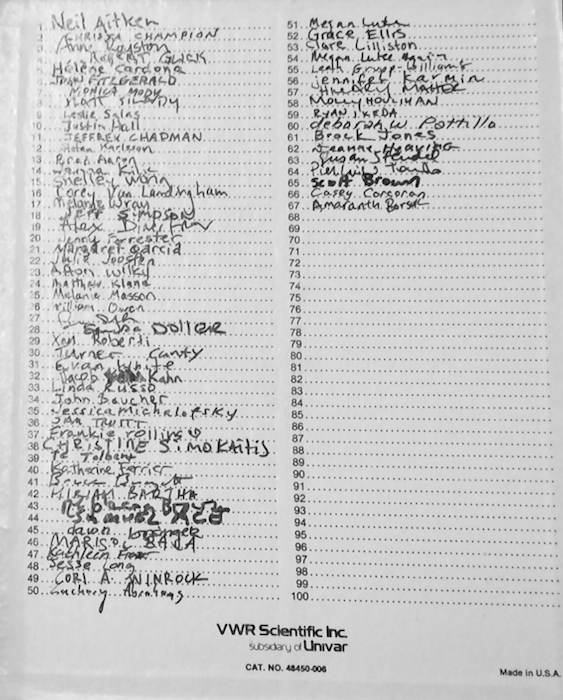 1 Neil Aitken
2. CHRISTA CHAMPION
3. Anne Royston
4. ROBERT GLICK
5. Hélène Cardona
6. JOHN FITZGERALD
7. MONICA MODY
8. MATT
9. Leslie Salas
10. Justin Hall
11. JEFFREY CHAPMAN
12. Helen Karlsson
13. Brad Aaron
14.
15. Shelley Wong
16. Corey Van Landingham
17. Melanie Wray
18. JEFF SIMPSON
19. Alex
20. Jenny Forrester
21. Margaret Garcia
22. Julie Joosten
23. Afton Wilky
24. Matthew Klane
25. Melanie Masson
26. William Owen
27.
28. Sandra DOLLER
29. Xon. Roberti
30. Turner Canty
31. Evan White
32. Jacob Kahn
33. Linda Russo
34. John Baucher
35. Jessica Michalofsky
36. SAM TRUITT
37. Frankie rollins
38 CHRISTINE SIMOKAITIS
39. TC Tolbert
40. Katherine Ferrier
41.
42. MIRIAM BARTHA
43.
44. SAMUEL ACE
45. dawn
46. MARISOL BACA
47. Kathleen Fraser
48. Jesse Long
49. LORI A. WINROCK
50. Zachary Abrahams
51. Megan Luke
52. Grace Ellis
53. Clare Lilliston
54. Megan Luke again
55. Leah Grupp-Williams
56. Jennifer Karmin
57. MATTER
58. MOLLY HOULIHAN
59. RYAN IKEDA
60. deborah w. Pottillo
61. Brock Jones
62. Jeanne Heuving
63. Susan
64.
65. Scott Brown
66. Casey Corcoran
67. Amaranth Borsuk
68.
69.
70.
71.
72.
73.
74.
75.
76.
77.
78.
79.
80.
81.
82.
83.
84.
85.
86.
87.
88.
89.
90.
91.
92.
93.
94.
95.
96.
97.
98.
99.
100.
VWR Scientific Inc.
subsidiary of Univar
CAT. NO. 48450-006
Made in U.S.A.